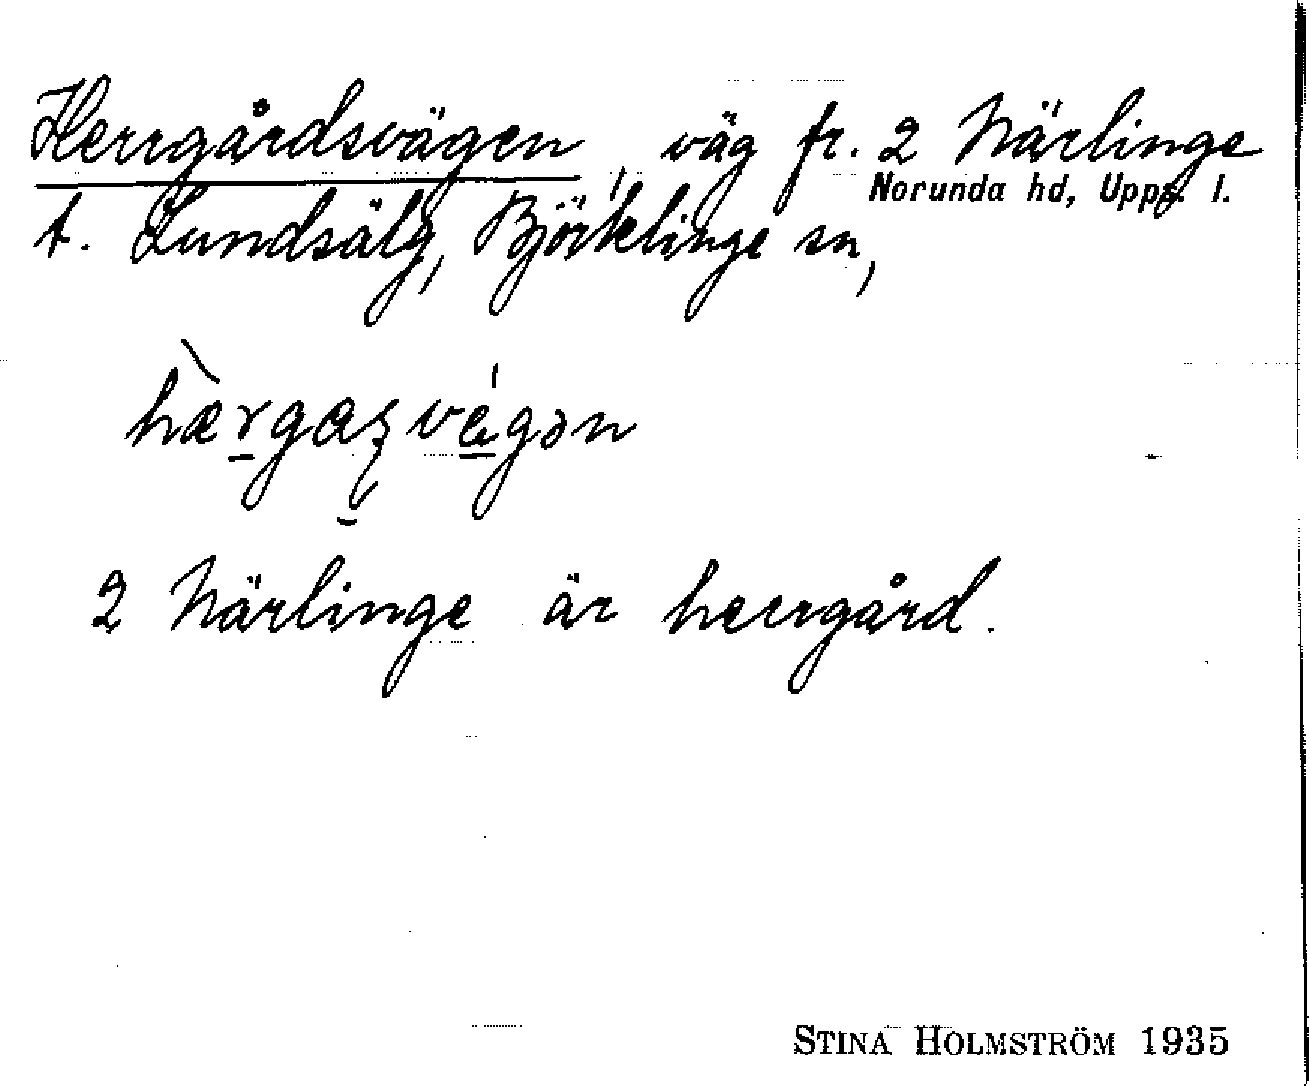 Herrgårdsvägen, väg fr. 2 Närlinge
Norunda hd, Upps. l.
t. Lundsälg, Björklinge sn,
hæ̀rgaʂvǽgən
2 Närlinge är herrgård.
STINA HOLMSTRÖM 1935